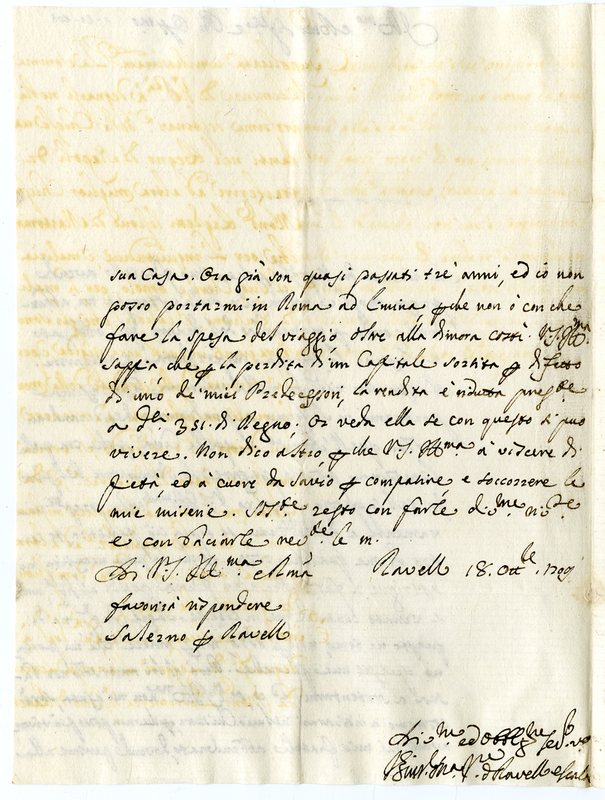 sua Casa. Ora già son quasi passati tré anni, ed io non
posso portarmi in Roma ad limina, p che non ò con che
fare la spesa del viaggio, oltre alla dimora costì. V.S. Ill.ma
sappia che p la perdita d'un Capitale sortita p difetto
di uno de' miei Predecessori, la rendita è ridotta pres.te
a d.ti 351. di Regno; Or veda ella se con questo si può
vivere. Non dico altro, p che V.S. Ill.ma à viscere di
pietà, ed à cuore da Savio p compatire, e soccorrere le
mie miserie. resto con farle
e con baciarle le m.
Di V.S. Ill.ma e Rma Ravello 18. Ott.e 1709
favorirà rispondere
Salerno p Ravello
ed
d Ravello e Scala